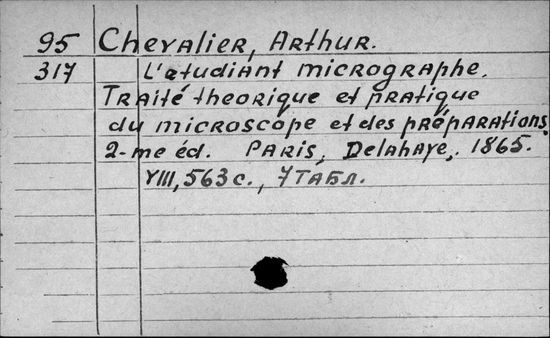 95 Chevalier, Arthur.
317 L'etudiant micrographe.
Traité theorique et pratique
du microscope et des préparations.
2-me éd. Paris, Delahaye, 1865.
VIII, 563 с., 7 табл.